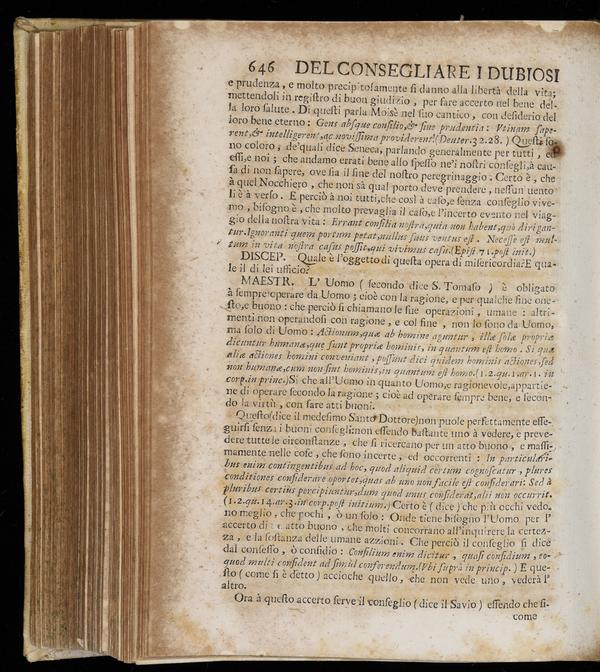 646 DEL CONSEGLIARE I DUBIOSI
e prudenza, e molto precipitosamente si danno alla libertà della vita;
mettendoli in registro di buon giudizio, per fare accerto nel bene del-
la loro salute. Di questi parla Moisè nel suo cantico, con desiderio del
loro bene eterno: Gens absque consilio,& sine prudentia: Vtinam sape-
rent,& intelligerent,ac novissima providerent!(Deuter.32.28.) Questi so-
no coloro, de'quali dice Seneca, parlando generalmente per tutti, ed
essi,e noi; che andamo errati bene allo spesso ne'i nostri consegli,à cau-
sa di non sapere, ove sia il fine del nostro peregrinaggio. Certo è, che
à quel Nocchiero, che non sà qual porto deve prendere, nessun uento
li è à verso. E perciò à noi tutti,che così à caso,e senza conseglio vive-
mo, bisogno è, che molto prevaglia il caso,e l'incerto evento nel viag-
gio della nostra vita: Errant consilia nostra,quia non habent,quò dirigan-
tur.Ignoranti quem portum petat,nullus suus ventus est. Necesse est mul-
tum in vita nostra casus possit,qui vivimus casu.(Epist.71.post init.)
DISCEP. Quale è l'oggetto di questa opera di misericordia?E qua-
le il di lei ufficio?
MAESTR. L' Uomo (secondo dice S. Tomaso) è obligato
à sempre operare da Uomo; cioè con la ragione, e per qualche fine one-
sto,e buono: che perciò si chiamano le sue operazioni, umane: altri-
menti non operandosi con ragione, e col fine, non lo sono da Uomo,
ma solo di Uomo: Actionum,quæ ab homine aguntur, illæ solæ propriæ
dicuntur humanæ,que sunt propriæ hominis, in quantum est homo. Si quæ
aliæ actiones homini conveniant, possunt dici quidem hominis actiones,sed
non humanæ,cum non sint hominis,in quantum est homo.(1.2.qu.1.ar.1. in
corp.in princ.)Sì che all'Uomo in quanto Uomo,e ragionevole,appartie-
ne di operare secondo la ragione; cioè ad operare sempre bene, e secon-
do la virtù, con fare atti buoni.
Questo(dice il medesimo Santo Dottore)non puole perfettamente esse-
guirsi senza i buoni consegli:non essendo bastante uno à vedere, e preve-
dere tutte le circonstanze, che si ricercano per un atto buono, e massi-
mamente nelle cose, che sono incerte, ed occorrenti: In particulari-
bus enim contingentibus ad hoc, quod aliquid certum cognoscatur, plures
conditiones considerare oportet,quas ab uno non facile est considerari: Sed à
pluribus certius percipiuntur,dum quod unus considerat,alii non occurrit.
(1.2.qu.14.ar.3.in corp.post initium.) Certo è (dice) che più occhi vedo-
no meglio, che pochi, ò un solo: Onde tiene bisogno l'Uomo per l'
accerto di atto buono, che molti concorrano all'inquirere la certez-
za, e la sostanza delle umane azzioni. Che perciò il conseglio si dice
dal consesso, ò considio: Consilium enim dicitur, quasi considium, eo-
quod multi consident ad simul conferendum.(Vbi suprà in princip.) E que-
sto (come si è detto) accioche quello, che non vede uno, vederà l'
altro.
Ora à questo accerto serve il conseglio (dice il Savio) essendo che si-
come